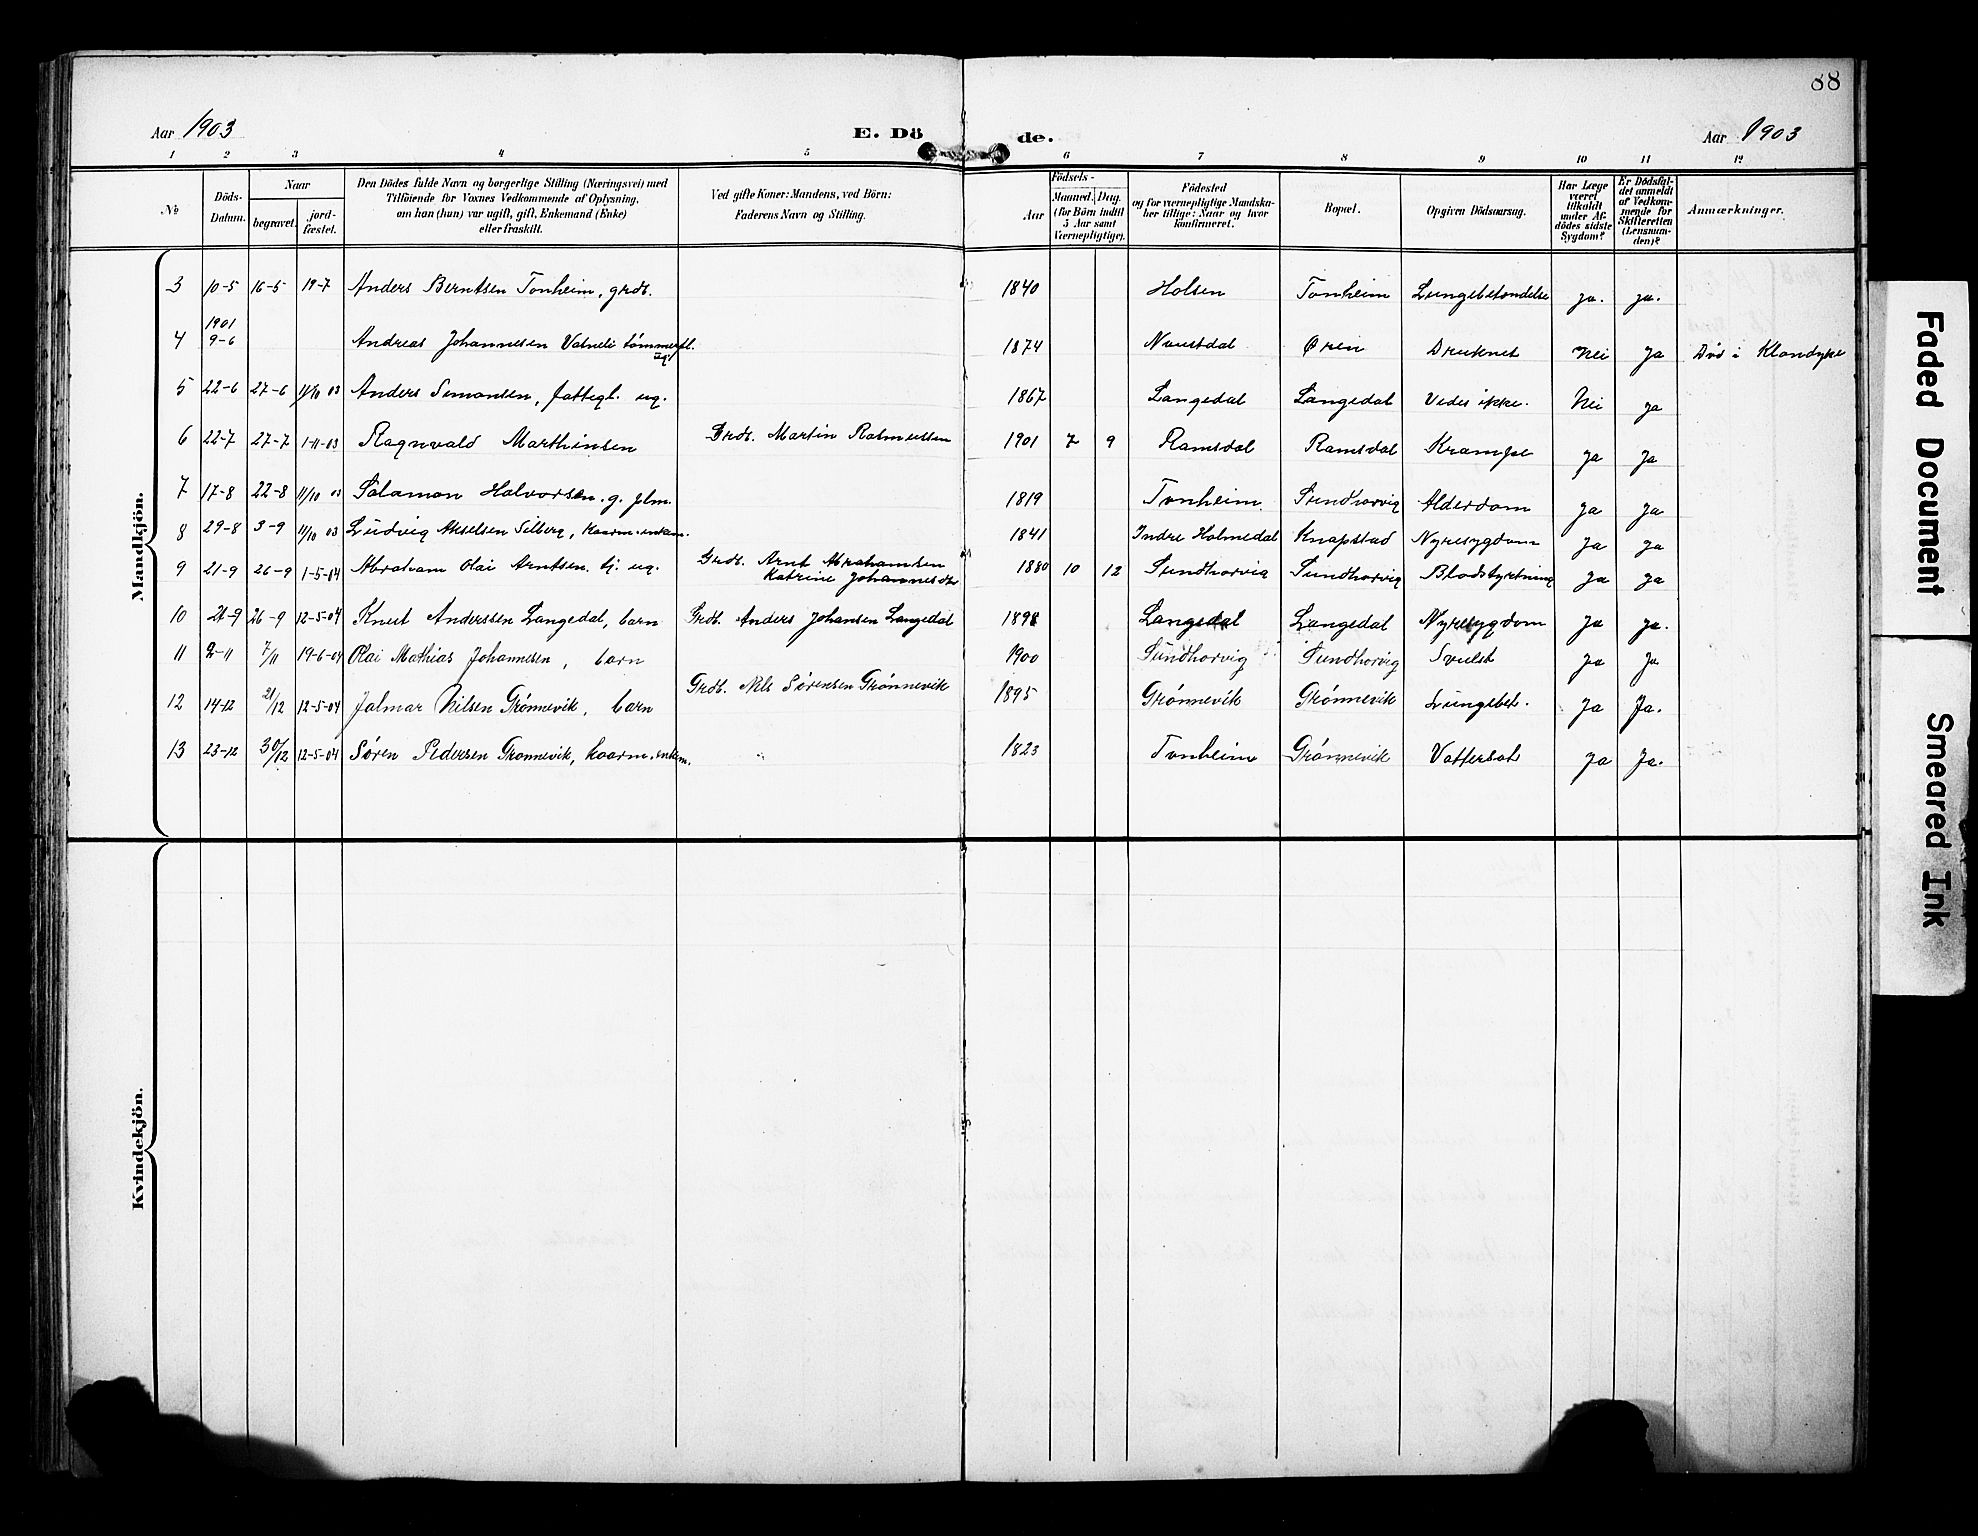 88
Aar 1903 E. Dö de. Aar 1903
1 2 3 4 5 6 7 8 9 10 11 12
№ Döds-Datum. Naar begravet. jord-fæstet. Den Dödes fulde Navn og borgerlige Stilling (Næringsvei) med Tilföiende for Voxnes Vedkommende af Oplysning, om han (hun) var ugift, gift, Enkemand (Enke) eller fraskilt. Ved gifte Koner: Mandens, ved Börn: Faderens Navn og Stilling. Födsels- Aar Maaned. Dag. (for Börn indtil 5 Aar samt Værnepligtige). Födested og for værnepligtige Mandskaber tillige: Naar og hvor konfirmeret. Bopæl. Opgiven Dödsaarsag. Har Læge været tilkaldt under Afdödes sidste Sygdom? Er Dödsfaldet anmeldt af Vedkommende for Skifteretten (Lensmanden)? Anmærkninger.
Mandkjön.
3 10-5 16-5 19-7 Anders Berntsen Tonheim, grdb. 1840 Holsen Tonheim Lungebetændelse ja. ja.
4 1901 9-6 Andreas Johannesen Vatneli tømmerfl. ug. 1874 Naustdal Øren Druknet Nei ja Død i Klondyke
5 22-6 27-6 11/10 03 Anders Simonsen, fattegl. ug. 1867 Langedal Langedal Vides ikke. Nei ja
6 22-7 27-7 1-11-03 Ragnvald Marthinsen Grdb. Martin Rasmussen 1901 7 9 Ramsdal Ramsdal Krampe ja Ja
7 17-8 22-8 11/10 03 Salamon Halvorsen. g. plm. 1819 Tonheim Sundhorvig Alderdom ja Ja
8 29-8 3-9 11/10 03 Ludvig Akselsen Silberg, kaarm. enkem. 1841 Indre Holmedal Knapstad Nyresygdom Ja ja
9 21-9 26-9 1-5-04 Abraham Olai Arntsen tj. ug. Grdb. Arnt Abrahamsen Katrine Johannesdr 1880 10 12 Sundhorvig Sundhorvig Blodstyrtning ja ja
10 21-9 26-9 12-5-04 Knut Anderssen Langedal, barn Grdb. Anders Johansen Langedal 1898 Langedal Langedal Nyresygdom Ja ja.
11 2-11 7/11 19-6-04 Olai Mathias Johannesen, barn 1900 Sundhorvig Sundhorvig Svulst ja Ja
12 14-12 21/12 12-5-04 Jalmar Nilsen Grønnevik, barn Grdb. Nils Sørensen Grønnevik 1895 Grønnevik Grønnevik Lungebet. Ja Ja.
13 23-12 30/12 12-5-04 Søren Pedersen Grønnevik, kaarm. enkem. 1823 Tonheim Grønnevik Vattersot ja Ja.
Kvindekjön.
Faded Document
Smeared Ink